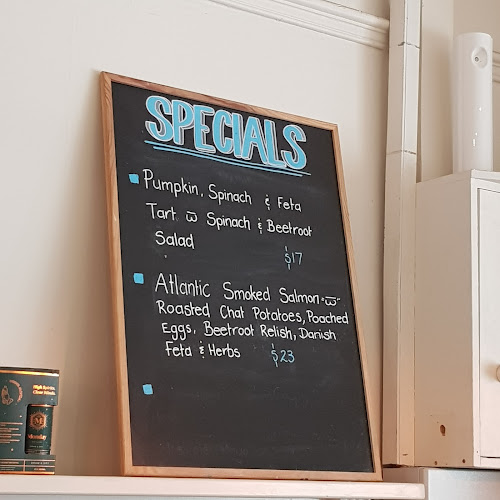 SPECIALS
Pumpkin, Spinach & Feta
Tart w̅ Spinach & Beetroot
Salad
$17
Atlantic Smoked Salmon "w̅"
Roasted Chat Potatoes, Poached
Eggs, Beetroot Relish, Danish
Feta & Herbs $23